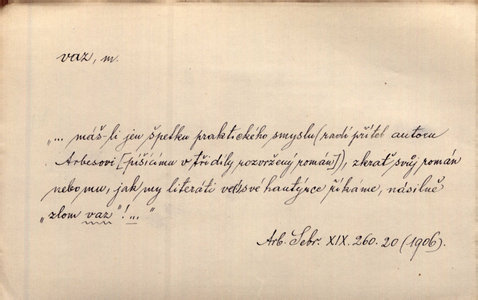 vaz, m.
„... máš-li jen špetku praktického smyslu (radí přítel autoru
Arbesovi [píšícímu v tři díly rozvržený román]), zkrať svůj román
nebo mu, jak my literáti ve své hantýrce říkáme, násilně
„zlom vaz“!...“
Arb. Sebr. XIX. 260. 20 (1906).